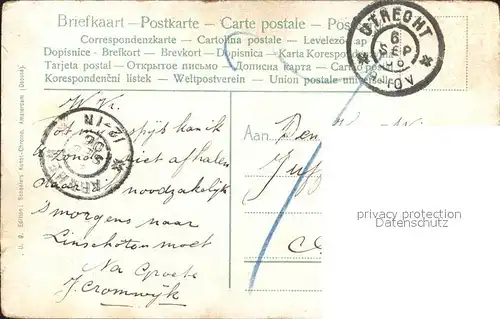 Briefkaart – Postkarte – Carte postale – Pos
Correspondenzkarte – Cartolina postale – Levelező-
Dopisnice – Brefkort – Brevkort – Dopisnica – Karta Korespond
Tarjeta postal – Открытое письмо – Дописна карта – Cart
Korespondenční lístek – Weltpostverein – Union postale universelle
UTRECHT
6
SEP
12-1N
U. G. Edition: Senefder
Amsterdam
W. Kr.
Tot mijn spijt kan ik
U Zondag niet afhalen
daar ik noodzakelijk
's morgens naar
Linschoten moet
Na Groete
J. Cromwijk
Aan
Den
Juff
privacy protection
Datenschutz